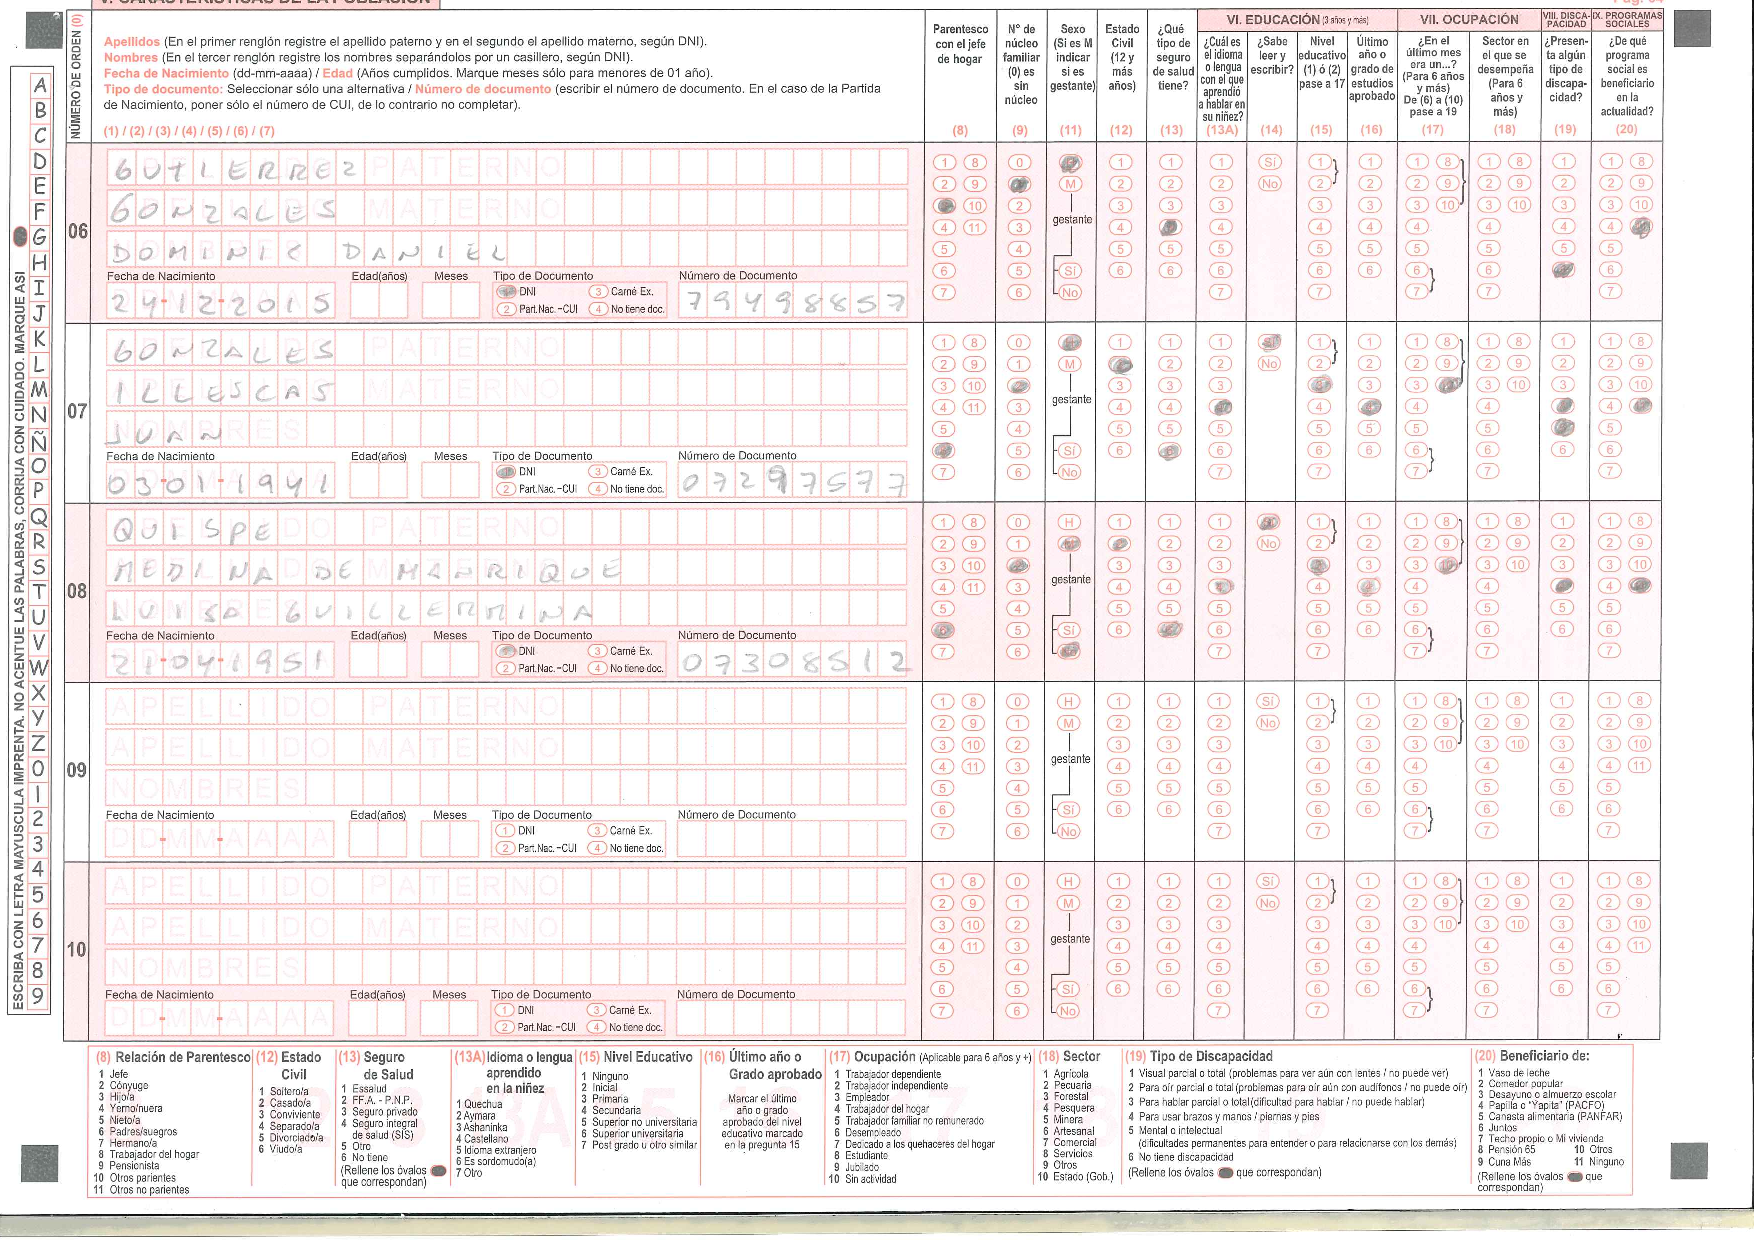 V. CARACTERÍSTICAS DE LA POBLACIÓN
Pág. 04
NÚMERO DE ORDEN (0)
Apellidos (En el primer renglón registre el apellido paterno y en el segundo el apellido materno, según DNI).
Nombres (En el tercer renglón registre los nombres separándolos por un casillero, según DNI).
Fecha de Nacimiento (dd-mm-aaaa) / Edad (Años cumplidos. Marque meses sólo para menores de 01 año).
Tipo de documento: Seleccionar sólo una alternativa / Número de documento (escribir el número de documento. En el caso de la Partida
de Nacimiento, poner sólo el número de CUI, de lo contrario no completar).
(1) / (2) / (3) / (4) / (5) / (6) / (7)
Parentesco con el jefe de hogar (8)
N° de núcleo familiar (0) es sin núcleo (9)
Sexo (Si es M indicar si es gestante) (11)
Estado Civil (12 y más años) (12)
¿Qué tipo de seguro de salud tiene? (13)
VI. EDUCACIÓN (3 años y más)
¿Cuál es el idioma o lengua con el que aprendió a hablar en su niñez? (13A)
¿Sabe leer y escribir? (14)
Nivel educativo (1) ó (2) pase a 17 (15)
Último año o grado de estudios aprobado (16)
VII. OCUPACIÓN
¿En el último mes era un...? (Para 6 años y más) De (6) a (10) pase a 19 (17)
Sector en el que se desempeña (Para 6 años y más) (18)
VIII. DISCAPACIDAD
¿Presenta algún tipo de discapacidad? (19)
IX. PROGRAMAS SOCIALES
¿De qué programa social es beneficiario en la actualidad? (20)
ESCRIBA CON LETRA MAYUSCULA IMPRENTA. NO ACENTUE LAS PALABRAS, CORRIJA CON CUIDADO. MARQUE ASI
A B C D E F G H I J K L M N Ñ O P Q R S T U V W X Y Z 0 1 2 3 4 5 6 7 8 9
06
GUTIERREZ
GONZALES
DOMINIC DANIEL
Fecha de Nacimiento Edad(años) Meses Tipo de Documento Número de Documento
24-12-2015 DNI 3 Carné Ex. 2 Part.Nac.-CUI 4 No tiene doc. 79498857
gestante
Sí
No
07
GONZALES
ILLESCAS
JUAN
Fecha de Nacimiento Edad(años) Meses Tipo de Documento Número de Documento
03-01-1941 DNI 3 Carné Ex. 2 Part.Nac.-CUI 4 No tiene doc. 07297577
gestante
Sí
No
08
QUISPE
MEDINA DE MANRIQUE
LUISA GUILLERMINA
Fecha de Nacimiento Edad(años) Meses Tipo de Documento Número de Documento
21-04-1951 DNI 3 Carné Ex. 2 Part.Nac.-CUI 4 No tiene doc. 07308512
gestante
Sí
09
APELLIDO PATERNO
APELLIDO MATERNO
NOMBRES
Fecha de Nacimiento Edad(años) Meses Tipo de Documento Número de Documento
DD-MM-AAAA 1 DNI 3 Carné Ex. 2 Part.Nac.-CUI 4 No tiene doc.
gestante
Sí
No
10
APELLIDO PATERNO
APELLIDO MATERNO
NOMBRES
Fecha de Nacimiento Edad(años) Meses Tipo de Documento Número de Documento
DD-MM-AAAA 1 DNI 3 Carné Ex. 2 Part.Nac.-CUI 4 No tiene doc.
gestante
Sí
No
(8) Relación de Parentesco
1 Jefe
2 Cónyuge
3 Hijo/a
4 Yerno/nuera
5 Nieto/a
6 Padres/suegros
7 Hermano/a
8 Trabajador del hogar
9 Pensionista
10 Otros parientes
11 Otros no parientes
(12) Estado Civil
1 Soltero/a
2 Casado/a
3 Conviviente
4 Separado/a
5 Divorciado/a
6 Viudo/a
(13) Seguro de Salud
1 Essalud
2 FF.A. - P.N.P.
3 Seguro privado
4 Seguro integral de salud (SIS)
5 Otro
6 No tiene
(Rellene los óvalos que correspondan)
(13A) Idioma o lengua aprendido en la niñez
1 Quechua
2 Aymara
3 Ashaninka
4 Castellano
5 Idioma extranjero
6 Es sordomudo(a)
7 Otro
(15) Nivel Educativo
1 Ninguno
2 Inicial
3 Primaria
4 Secundaria
5 Superior no universitaria
6 Superior universitaria
7 Post grado u otro similar
(16) Último año o Grado aprobado
Marcar el último año o grado aprobado del nivel educativo marcado en la pregunta 15
(17) Ocupación (Aplicable para 6 años y +)
1 Trabajador dependiente
2 Trabajador independiente
3 Empleador
4 Trabajador del hogar
5 Trabajador familiar no remunerado
6 Desempleado
7 Dedicado a los quehaceres del hogar
8 Estudiante
9 Jubilado
10 Sin actividad
(18) Sector
1 Agrícola
2 Pecuaria
3 Forestal
4 Pesquera
5 Minera
6 Artesanal
7 Comercial
8 Servicios
9 Otros
10 Estado (Gob.)
(19) Tipo de Discapacidad
1 Visual parcial o total (problemas para ver aún con lentes / no puede ver)
2 Para oír parcial o total (problemas para oír aún con audífonos / no puede oír)
3 Para hablar parcial o total(dificultad para hablar / no puede hablar)
4 Para usar brazos y manos / piernas y pies
5 Mental o intelectual
(dificultades permanentes para entender o para relacionarse con los demás)
6 No tiene discapacidad
(Rellene los óvalos que correspondan)
(20) Beneficiario de:
1 Vaso de leche
2 Comedor popular
3 Desayuno o almuerzo escolar
4 Papilla o "Yapita" (PACFO)
5 Canasta alimentaria (PANFAR)
6 Juntos
7 Techo propio o Mi vivienda
8 Pensión 65 10 Otros
9 Cuna Más 11 Ninguno
(Rellene los óvalos que correspondan)